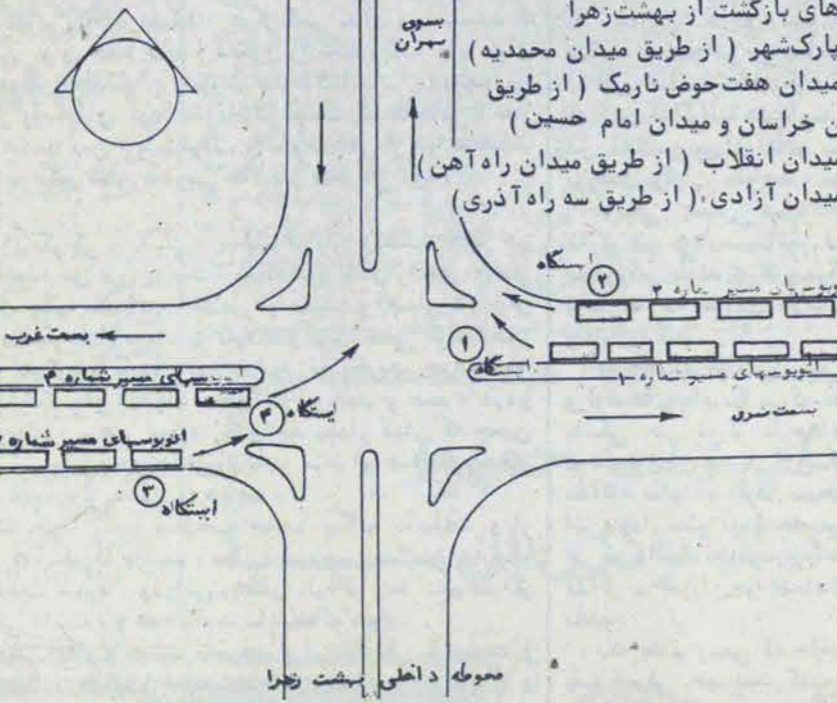 های بازگشت از بهشت‌زهرا
پارک‌شهر ( از طریق میدان محمدیه )
میدان هفت‌حوض نارمک ( از طریق
خراسان و میدان امام حسین )
میدان انقلاب ( از طریق میدان راه‌آهن )
میدان آزادی ( از طریق سه راه آذری )
بسوی
تهران
ایستگاه
۲
اتوبوسهای مسیر شماره ۲
۱
ایستگاه
اتوبوسهای مسیر شماره ۱
بسمت غرب
بسمت شرق
اتوبوسهای مسیر شماره ۴
ایستگاه
۴
اتوبوسهای مسیر شماره
۳
ایستگاه
محوطه داخلی بهشت زهرا